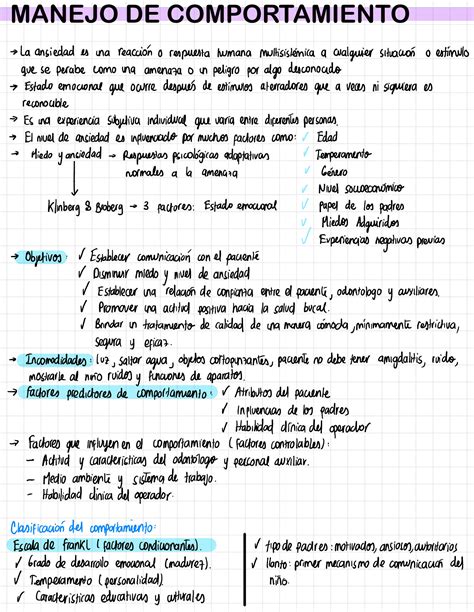 MANEJO DE COMPORTAMIENTO
→ La ansiedad es una reacción o respuesta humana multisistémica a cualquier situación o estímulo
que se percibe como una amenaza o un peligro por algo desconocido
→ Estado emocional que ocurre después de estímulos aterradores que a veces ni siquiera es
reconocible
→ Es una experiencia subjetiva individual que varia entre diferentes personas.
→ El nivel de ansiedad es influenciado por muchos factores como: ✓ Edad
→ Miedo y ansiedad → Respuestas psicológicas adaptativas ✓ Temperamento
normales a la amenaza ✓ Género
✓ Nivel socioeconómico
Klinberg & Broberg → 3 factores: Estado emocional ✓ Papel de los padres
✓ Miedos Adquiridos
✓ Experiencias negativas previas
→ Objetivos: ✓ Establecer comunicación con el paciente
✓ Disminuir miedo y nivel de ansiedad
✓ Establecer una relación de confianza entre el paciente, odontologo y auxiliares.
✓ Promover una actitud positiva hacia la salud bucal.
✓ Brindar un tratamiento de calidad de una manera cómoda, minimamente restrictiva,
segura y eficaz.
→ Incomodidades: luz, saltar agua, objetos cortopunzantes, paciente no debe tener amigdalitis, ruido,
mostrarle al niño ruidos y funciones de aparatos.
→ Factores predictores de comportamiento: ✓ Atributos del paciente
✓ Influencias de los padres
✓ Habilidad clínica del operador
→ Factores que influyen en el comportamiento (factores controlables):
– Actitud y características del odontólogo y personal auxiliar.
– Medio ambiente y sistema de trabajo.
– Habilidad clínica del operador.
Clasificación del comportamiento:
Escala de frankl (factores condicionantes).
✓ Grado de desarrollo emocional (madurez).
✓ Temperamento (personalidad).
✓ Características educativas y culturales
✓ tipo de padres: motivados, ansiosos, autoritarios
✓ llanto: primer mecanismo de comunicación del
niño.